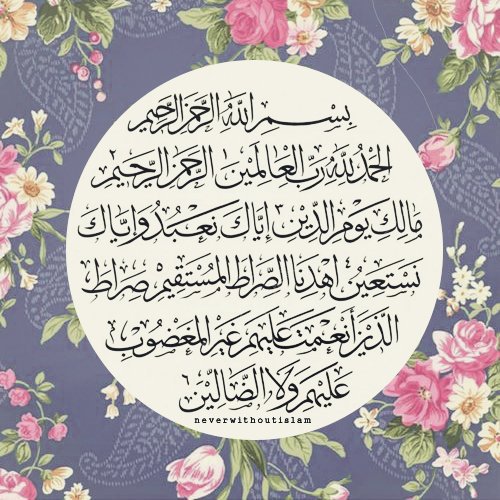 بِسْمِ اللَّهِ الرَّحْمَنِ الرَّحِيمِ
الْحَمْدُ لِلَّهِ رَبِّ الْعَالَمِينَ الرَّحْمَنِ الرَّحِيمِ
مَالِكِ يَوْمِ الدِّينِ إِيَّاكَ نَعْبُدُ وَإِيَّاكَ
نَسْتَعِينُ اهْدِنَا الصِّرَاطَ الْمُسْتَقِيمَ صِرَاطَ
الَّذِينَ أَنْعَمْتَ عَلَيْهِمْ غَيْرِ الْمَغْضُوبِ
عَلَيْهِمْ وَلَا الضَّالِّينَ
neverwithoutislam